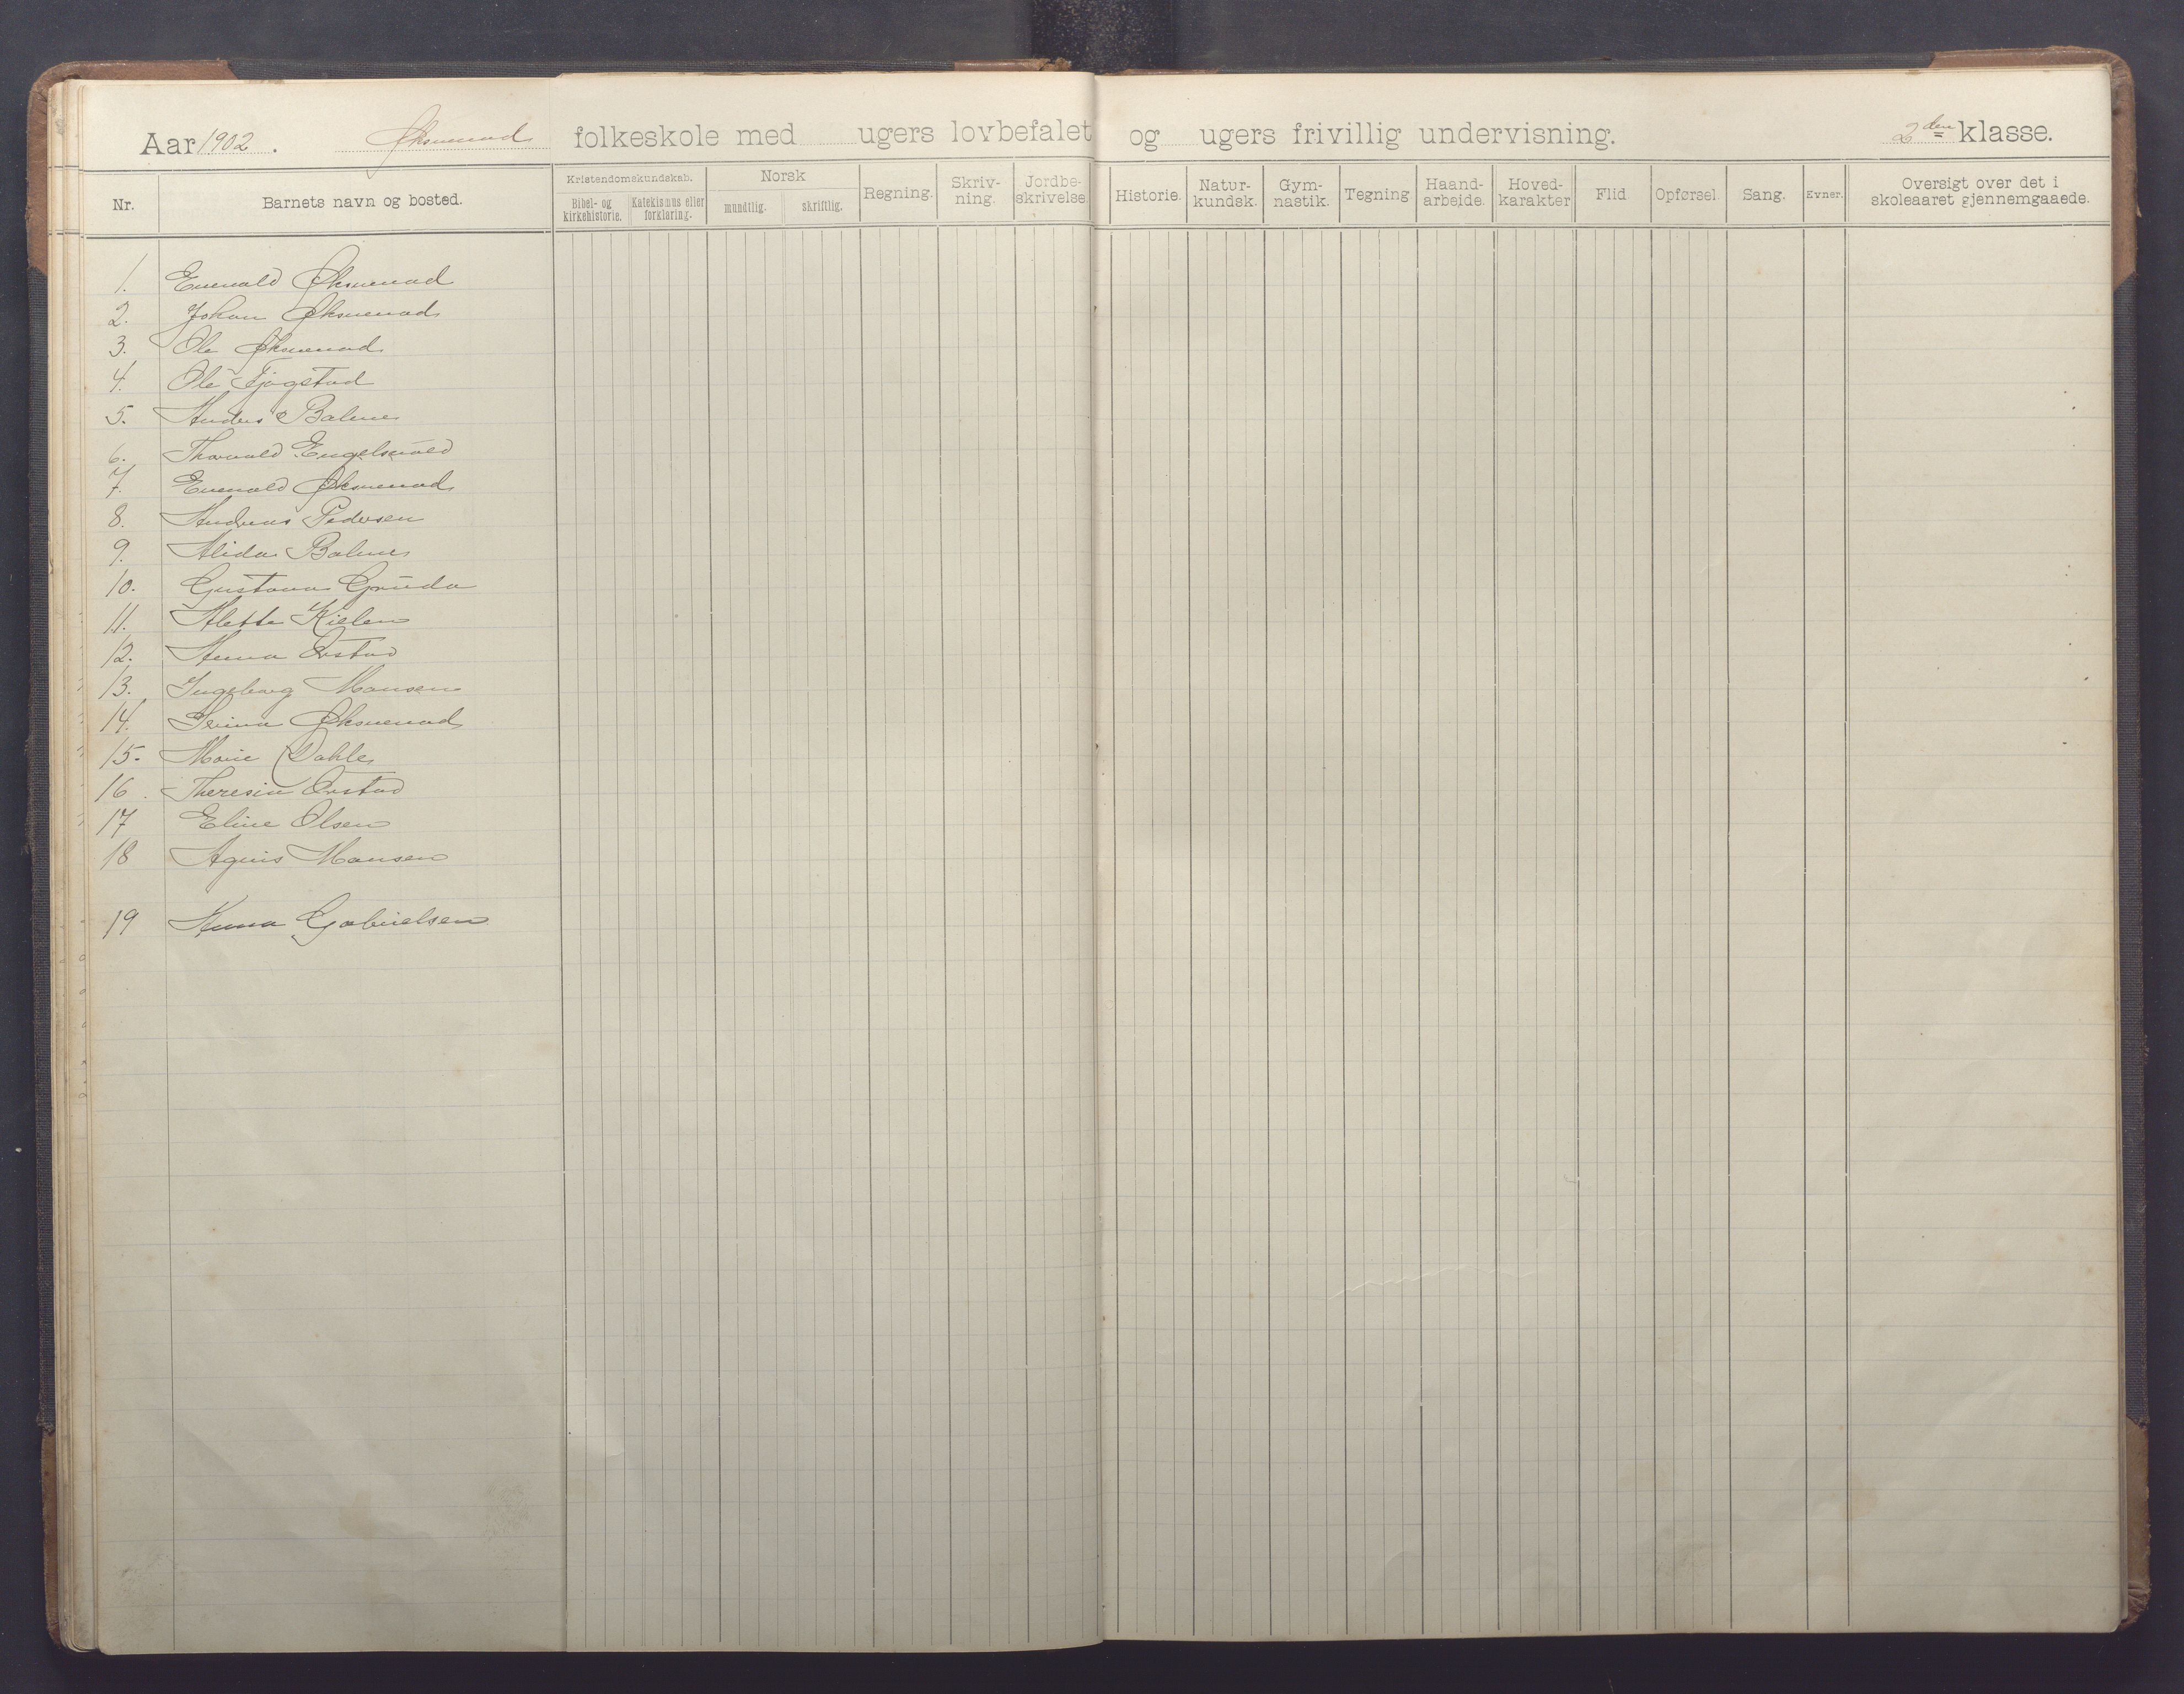 Aar 1902. Øksnevad folkeskole med ugers lovbefalet og ugers frivillig undervisning. 2den klasse.
Nr. Barnets navn og bosted. Kristendomskundskab. Bibel- og kirkehistorie. Katekismus eller forklaring. Norsk mundtlig. skriftlig. Regning. Skriv-ning. Jordbe-skrivelse. Historie. Natur-kundsk. Gym-nastik. Tegning Haand-arbeide. Hoved-karakter Flid Opførsel Sang. Evner. Oversigt over det i skoleaaret gjennemgaaede.
1. Enevald Øksnevad
2. Johan Øksnevad
3. Ole Øksnevad
4. Ole Tjøgstad
5. Anders Balme
6. Thorvald Engelsvold
7. Enevald Øksnevad
8. Andreas Pedersen
9. Alida Balme
10. Gustava Gruda
11. Alette Kielen
12. Anna Orstad
13. Ingeborg Monsen
14. Serina Øksnevad
15. Marie Dahle
16. Theresia Orstad
17 Eline Olsen
18 Agnis Monsen
19 Anna Gabrielsen